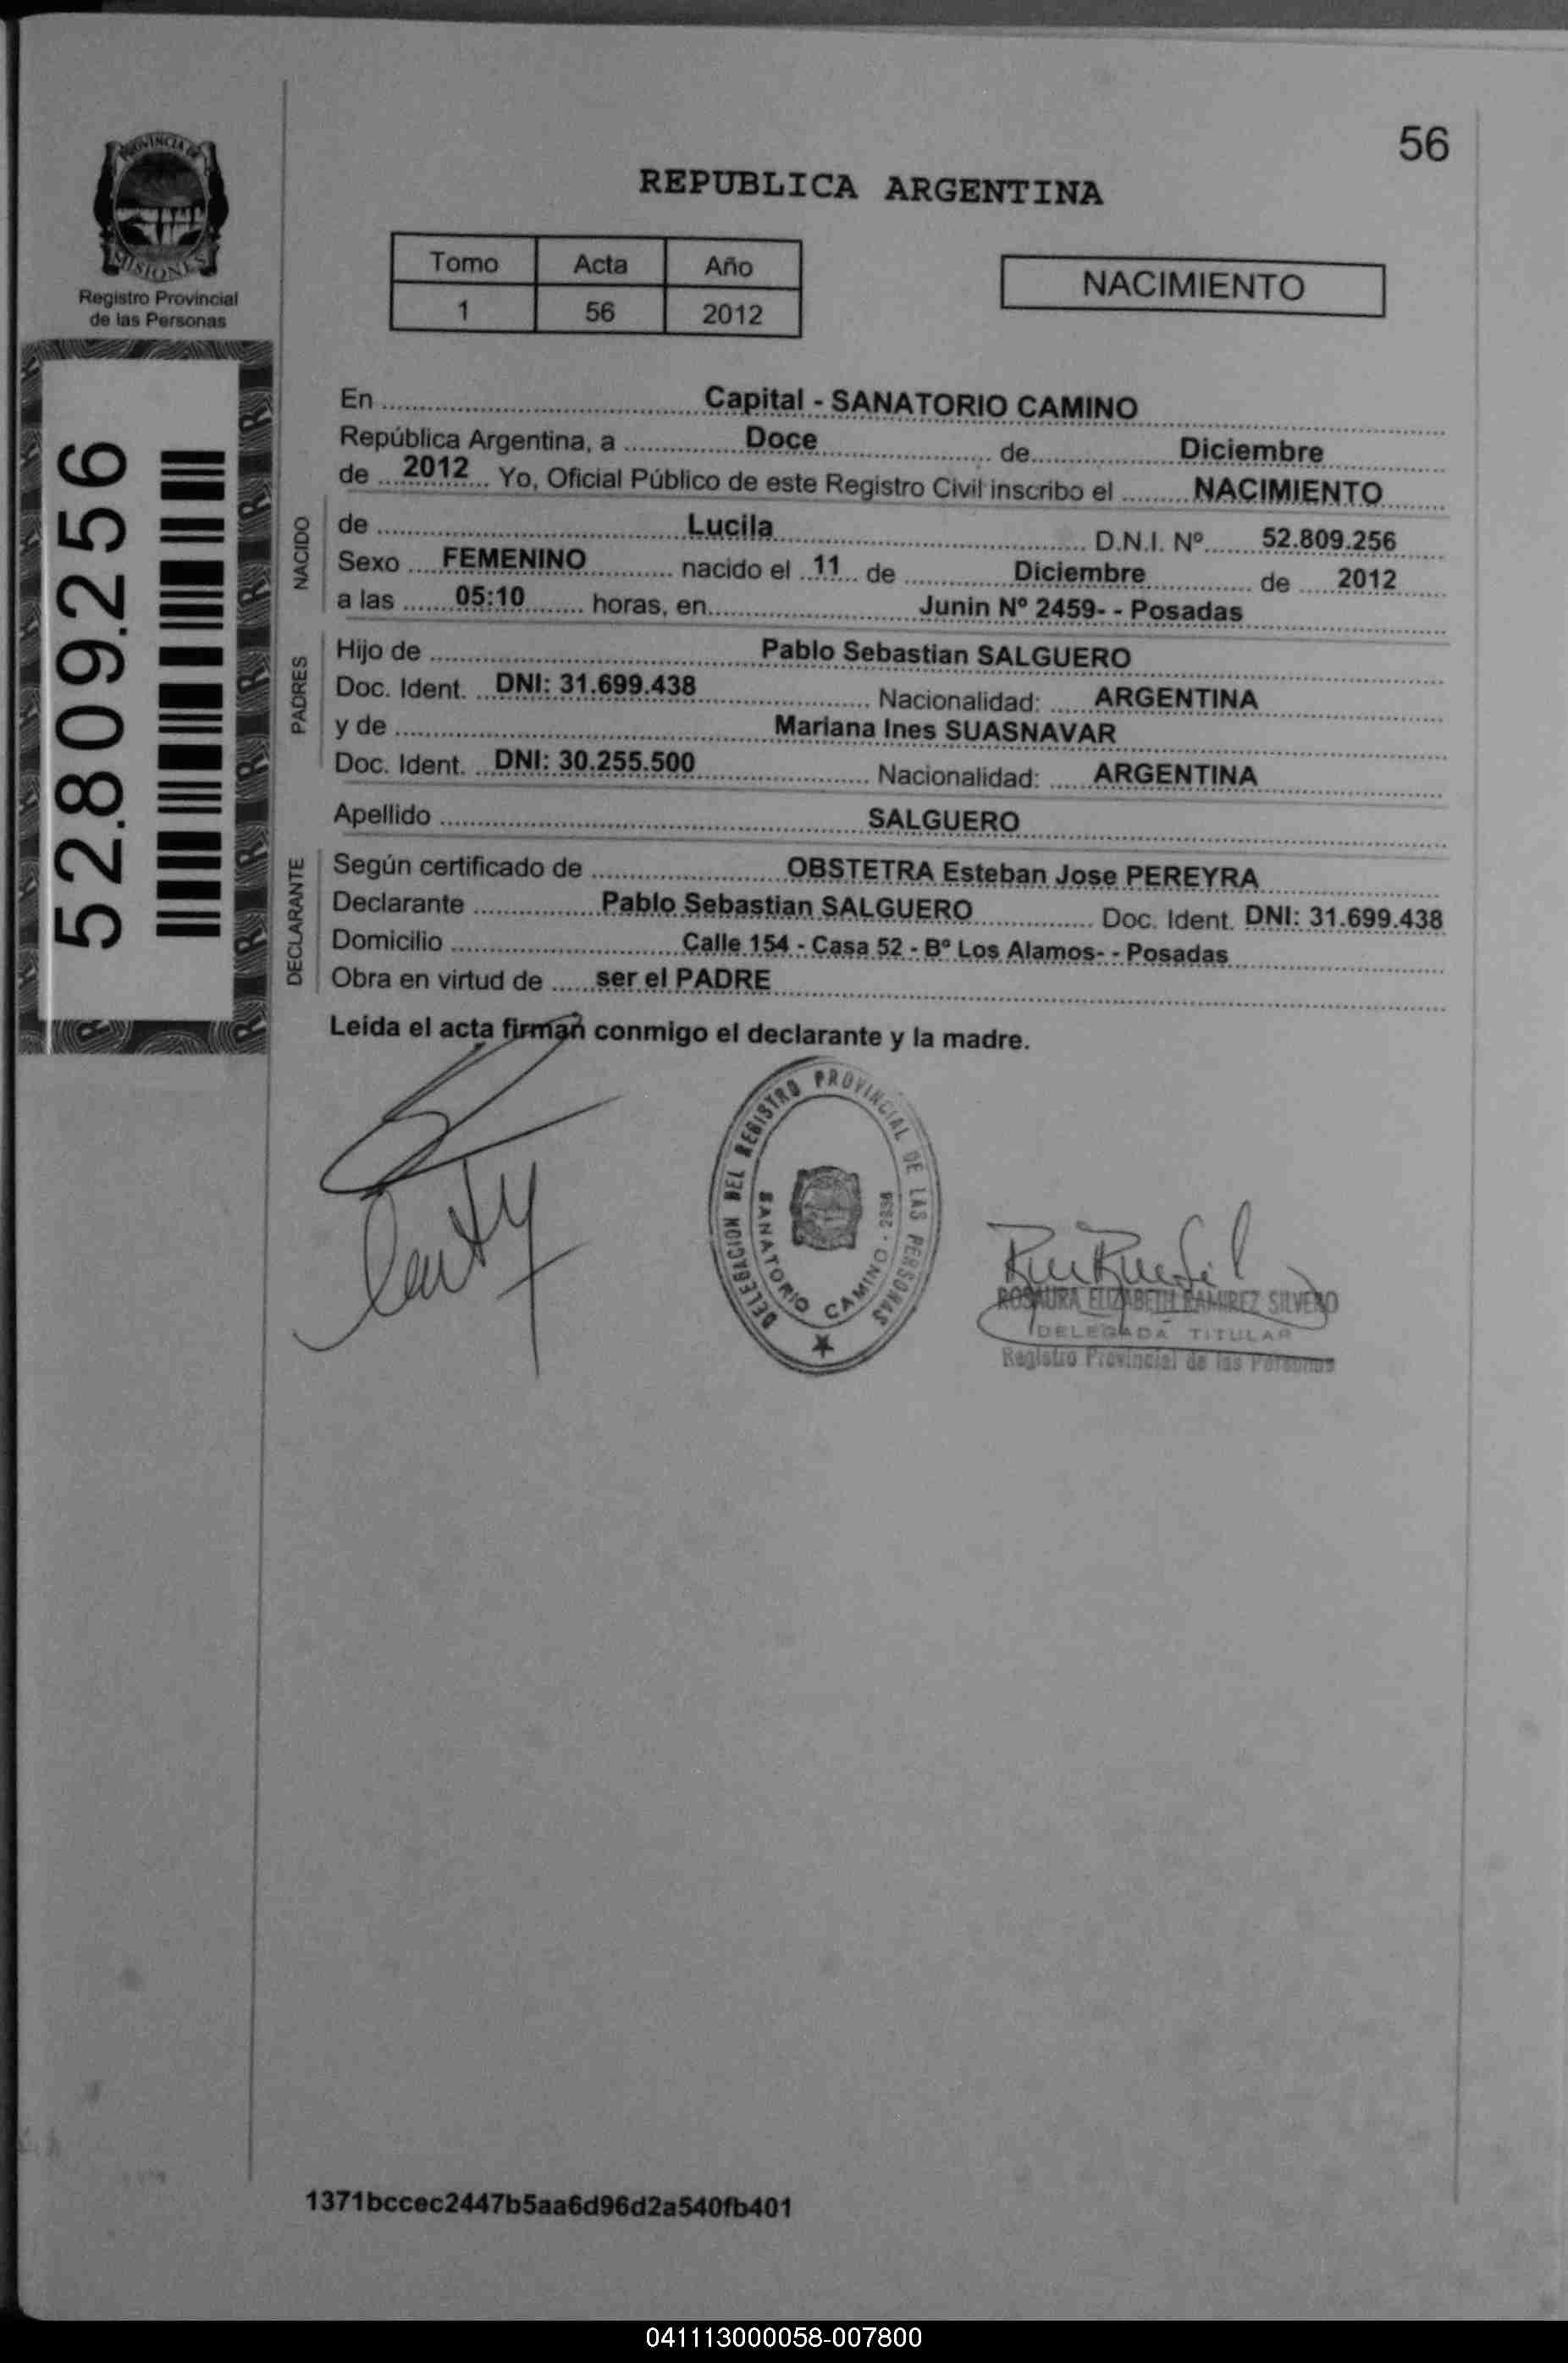 56
PROVINCIA DE
MISIONES
Registro Provincial
de las Personas
REPUBLICA ARGENTINA
Tomo Acta Año
1 56 2012
NACIMIENTO
52.809.256
En Capital - SANATORIO CAMINO
República Argentina, a Doce de Diciembre
de 2012 Yo, Oficial Público de este Registro Civil inscribo el NACIMIENTO
NACIDO
de Lucila D.N.I. Nº 52.809.256
Sexo FEMENINO nacido el 11 de Diciembre de 2012
a las 05:10 horas, en Junin Nº 2459- - Posadas
PADRES
Hijo de Pablo Sebastian SALGUERO
Doc. Ident. DNI: 31.699.438 Nacionalidad: ARGENTINA
y de Mariana Ines SUASNAVAR
Doc. Ident. DNI: 30.255.500 Nacionalidad: ARGENTINA
Apellido SALGUERO
DECLARANTE
Según certificado de OBSTETRA Esteban Jose PEREYRA
Declarante Pablo Sebastian SALGUERO Doc. Ident. DNI: 31.699.438
Domicilio Calle 154 - Casa 52 - Bº Los Alamos- - Posadas
Obra en virtud de ser el PADRE
Leída el acta firman conmigo el declarante y la madre.
DELEGACION DEL REGISTRO PROVINCIAL DE LAS PERSONAS
SANATORIO CAMINO - 2938
ROSAURA ELIZABETH RAMIREZ SILVERO
DELEGADA TITULAR
Registro Provincial de las Personas
1371bccec2447b5aa6d96d2a540fb401
041113000058-007800